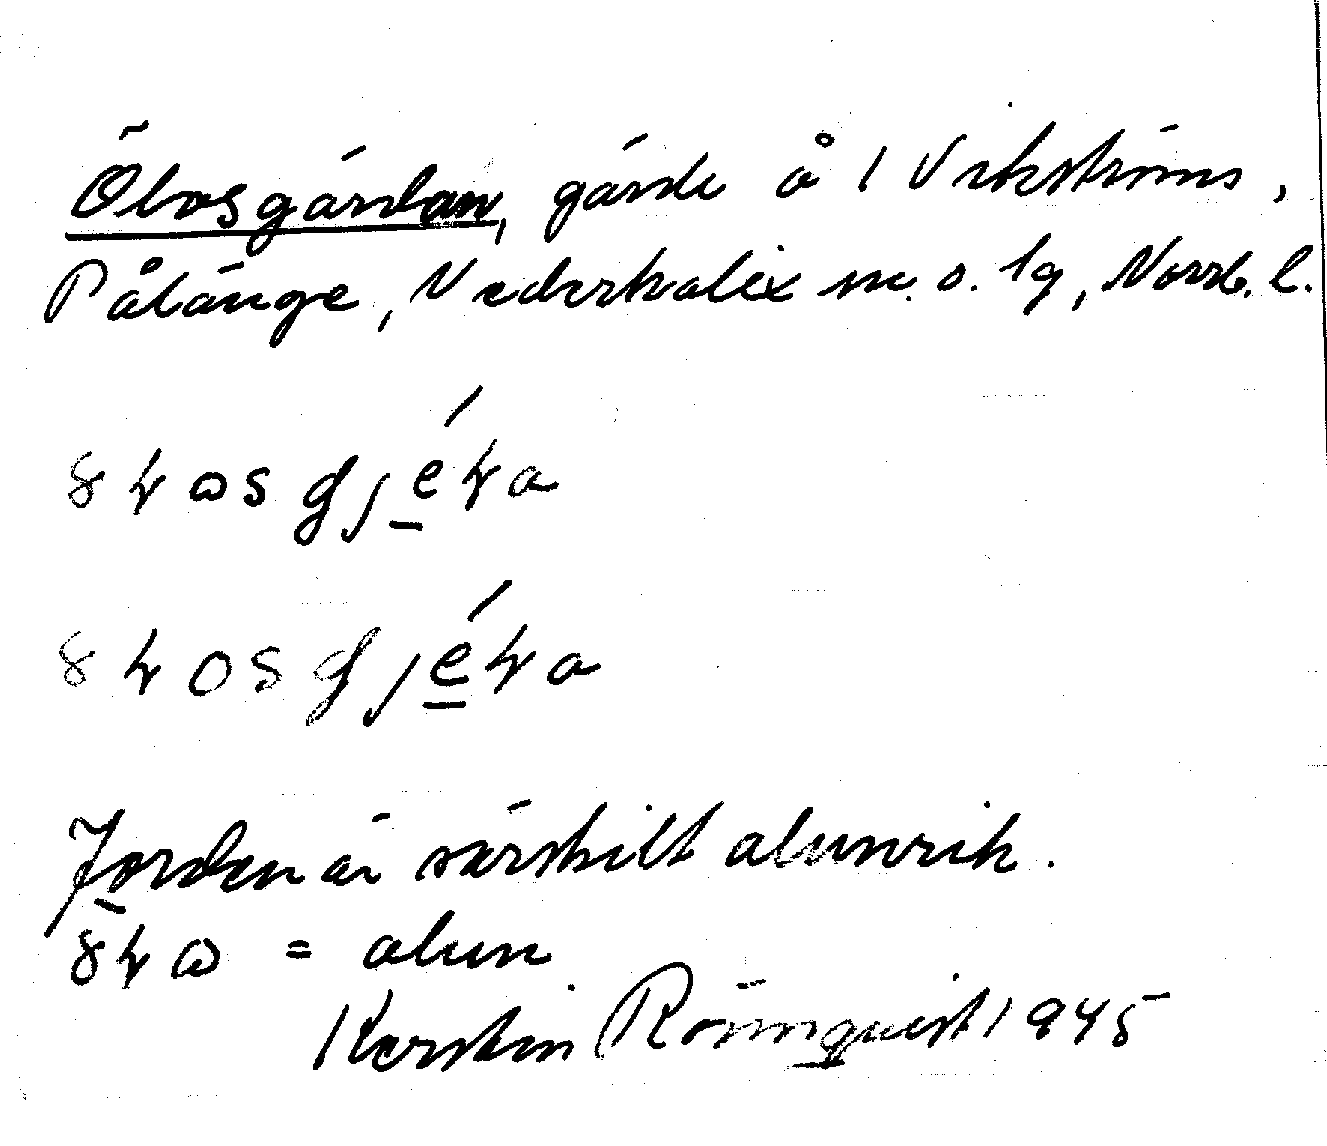 Ölosgärdan, gärde å 1 Vikströms,
Pålänge, Nederkalix sn. o. lg, Norrb. l.
Jorden är särskilt alunrik.
= alun
Kerstin Rönnquist 1945